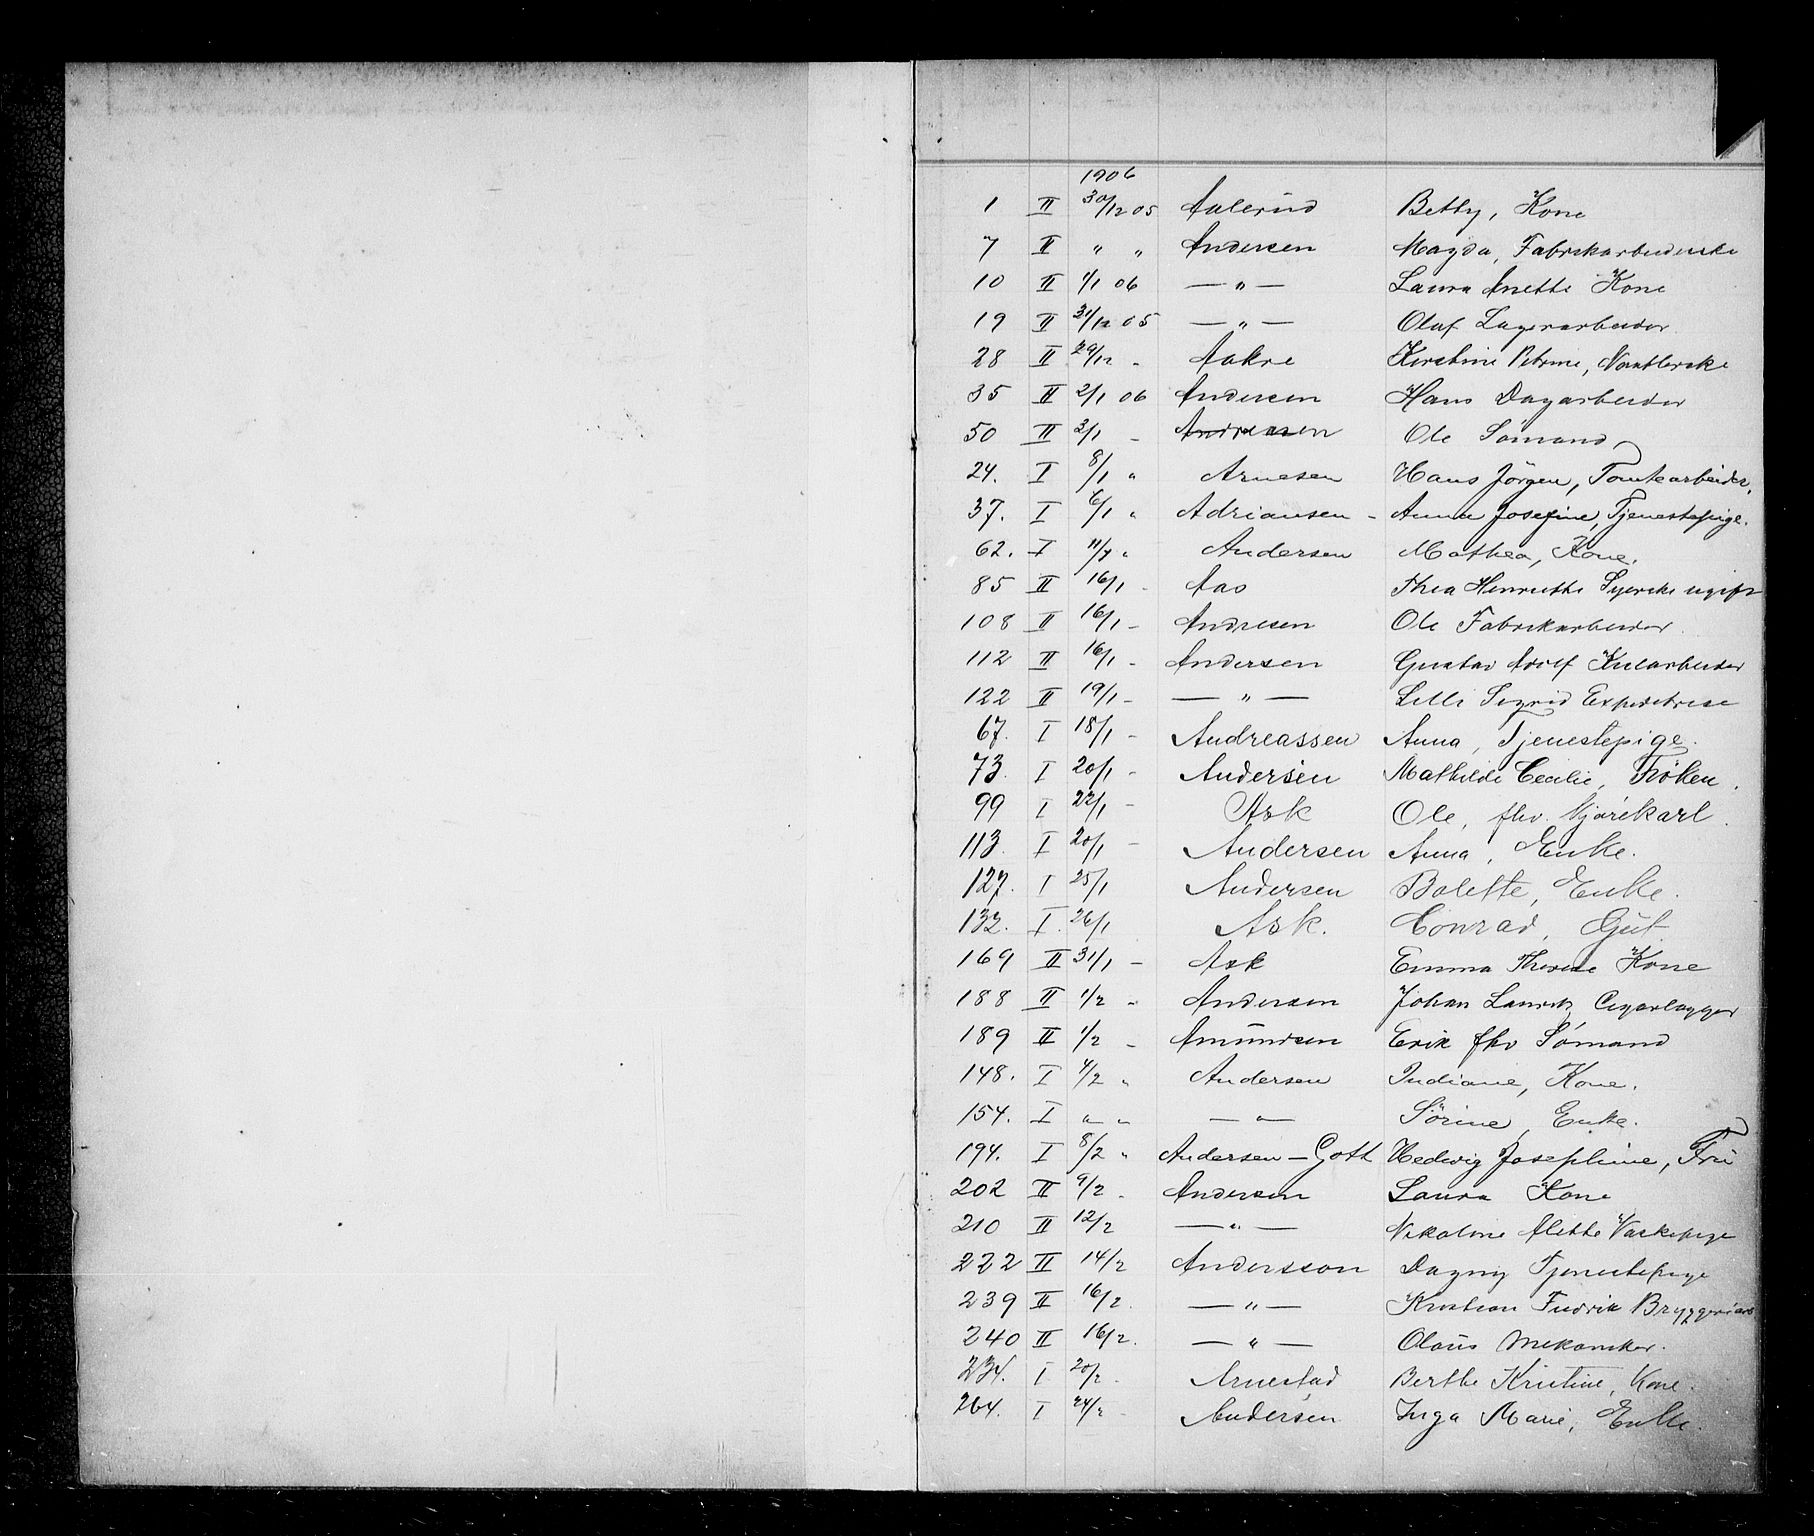 1906
1 II 30/12 05 Aalerud Betty, Kone
7 II " " Andersen Magda, Fabrikarbeiderske
10 II 1/1 06 — " — Laura Anette Kone
19 II 31/12 05 — " — Olaf Lagerarbeider
28 II 29/12 - Aakre Kirstine Petrine,
35 II 2/1 06 Andersen Hans Dagarbeider
50 II 3/1 - Andresen Ole Sømand
24. I 8/1 " Arnesen Hans Jörgen, Tomtearbeider,
37. I 6/1 " Adriansen - Anna Josefine, Tjenestepige.
62. I 11/1 " Andersen Mathea, Kone.
85 II 16/1 - Aas Thea Henriette Syerske ugift
108 II 16/1 - Andresen Ole Fabrikarbeider
112 II 16/1 - Andersen Gustav Adolf Kularbeider
122 II 19/1 - — " — Lilli Sigrid Expeditrise
67. I 18/1 - Andreassen Anna, Tjenestepige.
73. I 20/1 - Andersen Mathilde Cecilie, Frøken.
99 I 22/1 - Ask Ole, fhv. Kjørekarl.
113. I 20/1 - Andersen Anna, Enke.
127. I 25/1 Andersen Bolette, Enke.
132. I. 26/1 Ask. Conrad, Gut
169 II 31/1 - Ask Emma Therese Kone
188 II 1/2 - Andersen Johan Laurits, Cigarlægger
189 II 1/2 - Amundsen Erik fhv Sómand
148. I 4/2 " Andersen Indiane, Kone.
154. I " " — " — Sörine, Enke.
194. I 8/2 " Andersen - Gott Hedwig Josephine, Frü
202 II 9/2 - Andersen Laura Kone
210 II 12/2 — " — Nikoline Alette Vaskepige
222 II 14/2 Andersson Dagny Tjenestepige
239 II 16/2. — " — Kristian Fredrik Bryggeriarb
240 II 16/2. — " — Olaus Mekaniker.
234. I 20/2 - Arnestad Berthe Kristine, Kone.
264. I 24/2 - Andersen Inga Marie, Enke.